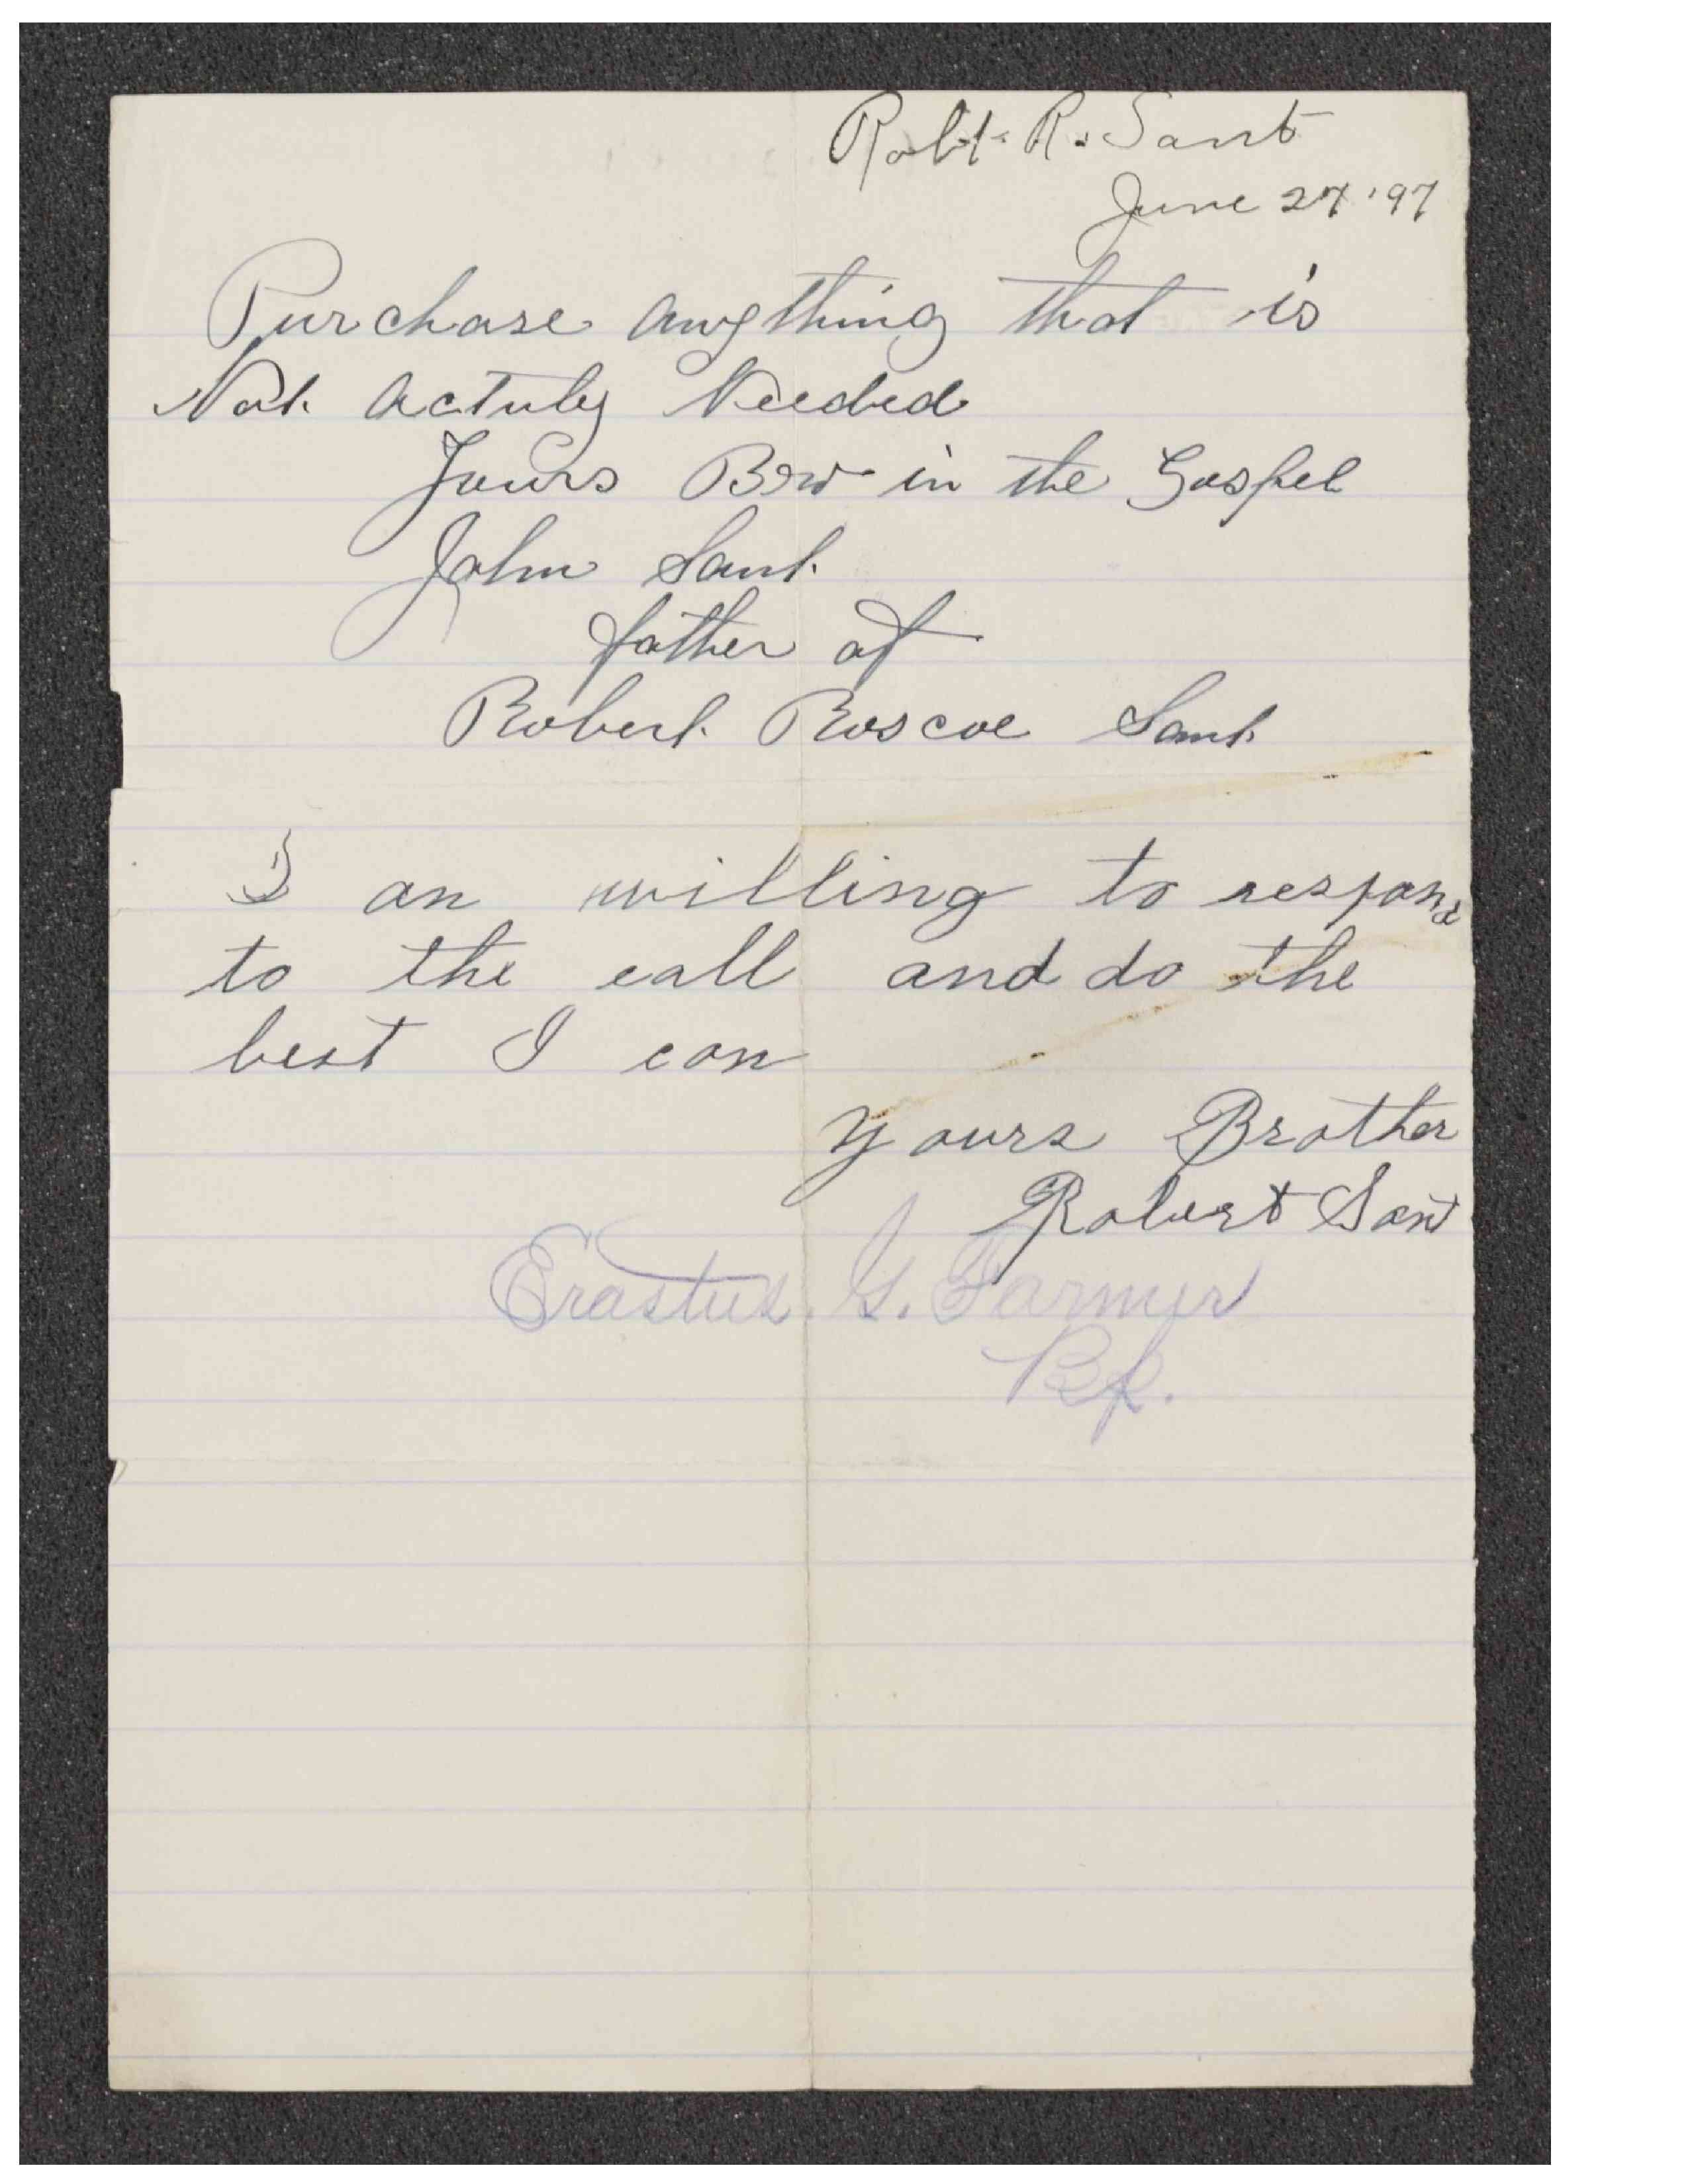 Robt. R. Sant
June 27 '97
Purchase anything that is
Not actuly Needed
Yours Bro in the Gospel
John Sant.
father of
Robert Roscoe Sant
I an willing to respond
to the call and do the
best I can
Yours Brother
Robert Sant
Erastus. G. Farmer
Bp.